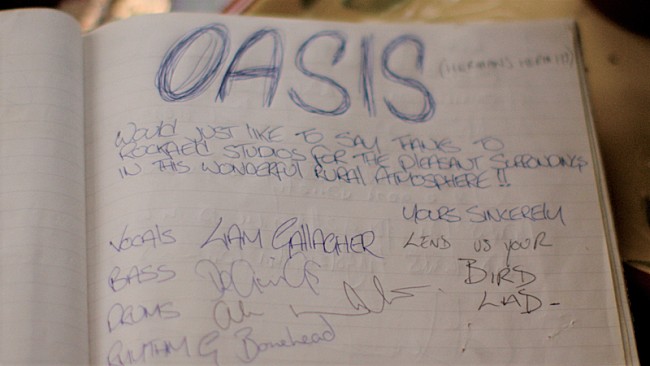 OASIS
WOULD JUST LIKE TO SAY THANKS TO
ROCKFIELD STUDIOS FOR THE PLEASANT SURRONDINGS
IN THIS WONDERFUL RURAL ATMOSPHERE!!
YOURS SINCERELY
VOCALS LIAM GALLAGHER
BASS
DRUMS
RHYTHM G Bonehead
LEND US YOUR
BIRD
LAD-